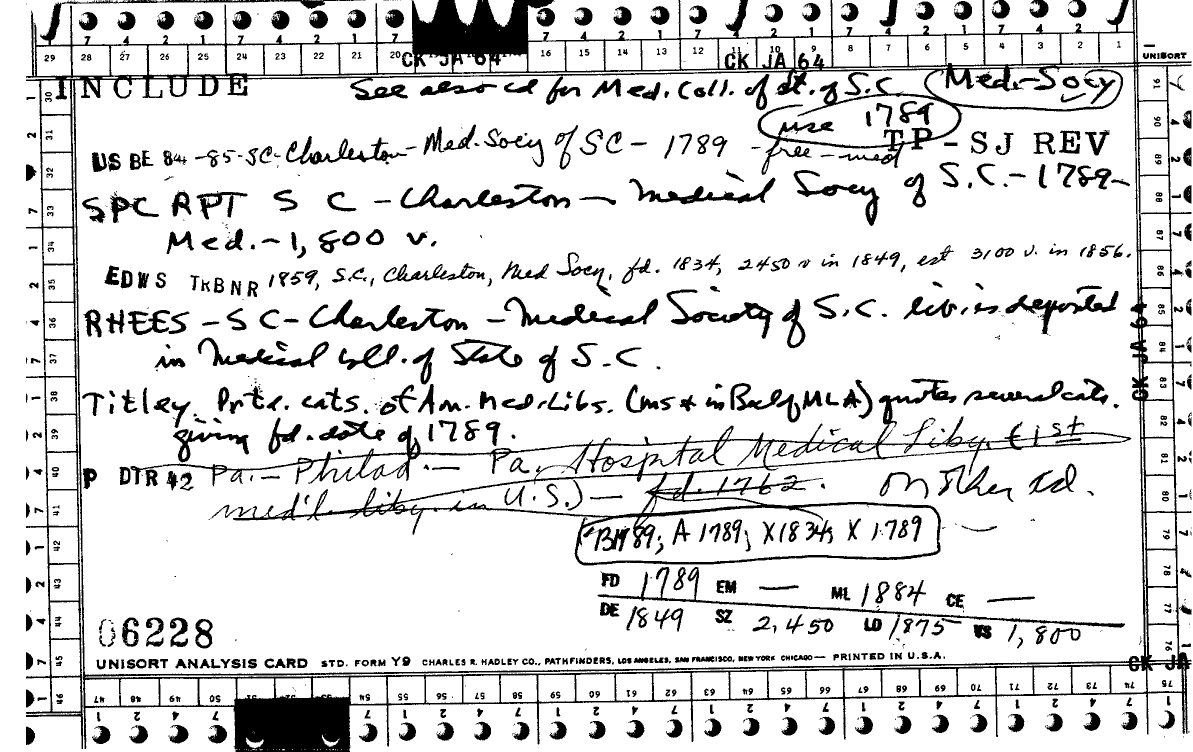 7 4 2 1 7 4 2 1 7 7 4 2 1 7 4 2 1 7 4 2 1 7 4 2 1
29 28 27 26 25 24 23 22 21 20 16 15 14 13 12 11 10 9 8 7 6 5 4 3 2 1 UNISORT
CK JA 64 CK JA 64
INCLUDE See also cd for Med. Coll. of St. of S.C. Med. Socy
use 1789
TP - SJ REV
US BE 84-85-SC-Charleston-Med. Socy of SC - 1789 - free - med
SPC RPT S C - Charleston - Medical Socy of S.C. - 1789 -
Med. - 1,800 v.
EDWS TRBNR 1859, S.C., Charleston, Med Socy, fd. 1834, 2450 v in 1849, est 3100 v. in 1856.
RHEES - S C - Charleston - Medical Society of S.C. lib. is deposited
in Medical Coll. of State of S.C.
Titley Prtd. cats. of Am. Med. Libs. (ms * in Bul of MLA) quotes several cats.
giving fd. date of 1789.
P DTR 42 Pa. - Philad. - Pa. Hospital Medical Liby. (1st
med'l liby. in U.S.) - fd. 1762. on other cd.
B1789; A 1789; X1834; X 1789
FD 1789 EM — ML 1884 CE —
DE 1849 SZ 2,450 LD 1875 VS 1,800
06228
UNISORT ANALYSIS CARD STD. FORM Y9 CHARLES R. HADLEY CO., PATHFINDERS, LOS ANGELES, SAN FRANCISCO, NEW YORK CHICAGO — PRINTED IN U.S.A.
CK JA 64
CK JA
47 48 49 50 54 55 56 57 58 59 60 61 62 63 64 65 66 67 68 69 70 71 72 73 74 75
1 2 4 7 7 1 2 4 7 1 2 4 7 1 2 4 7 1 2 4 7 1 2 4 7